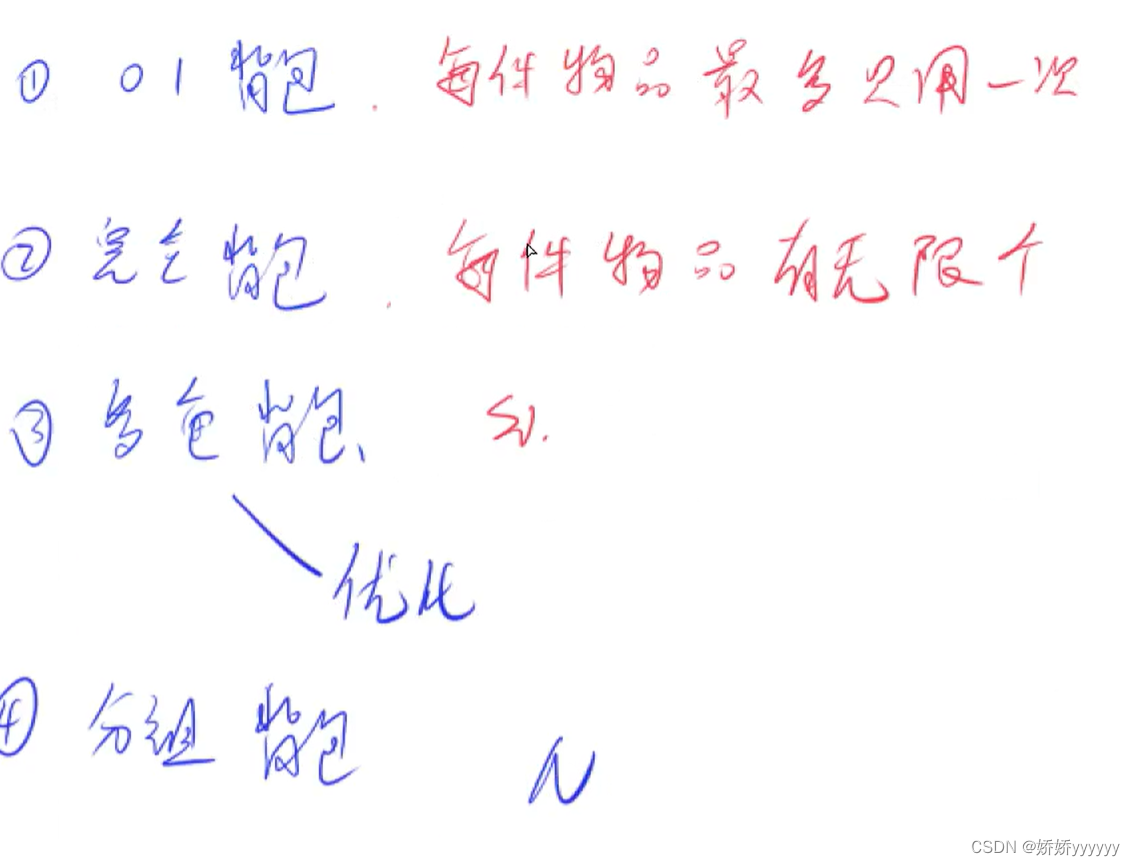 ① 01 背包. 每件物品最多只用一次
② 完全背包. 每件物品有无限个
③ 多重背包、 Si.
优化
④ 分组背包 N
CSDN @娇娇yyyyyy